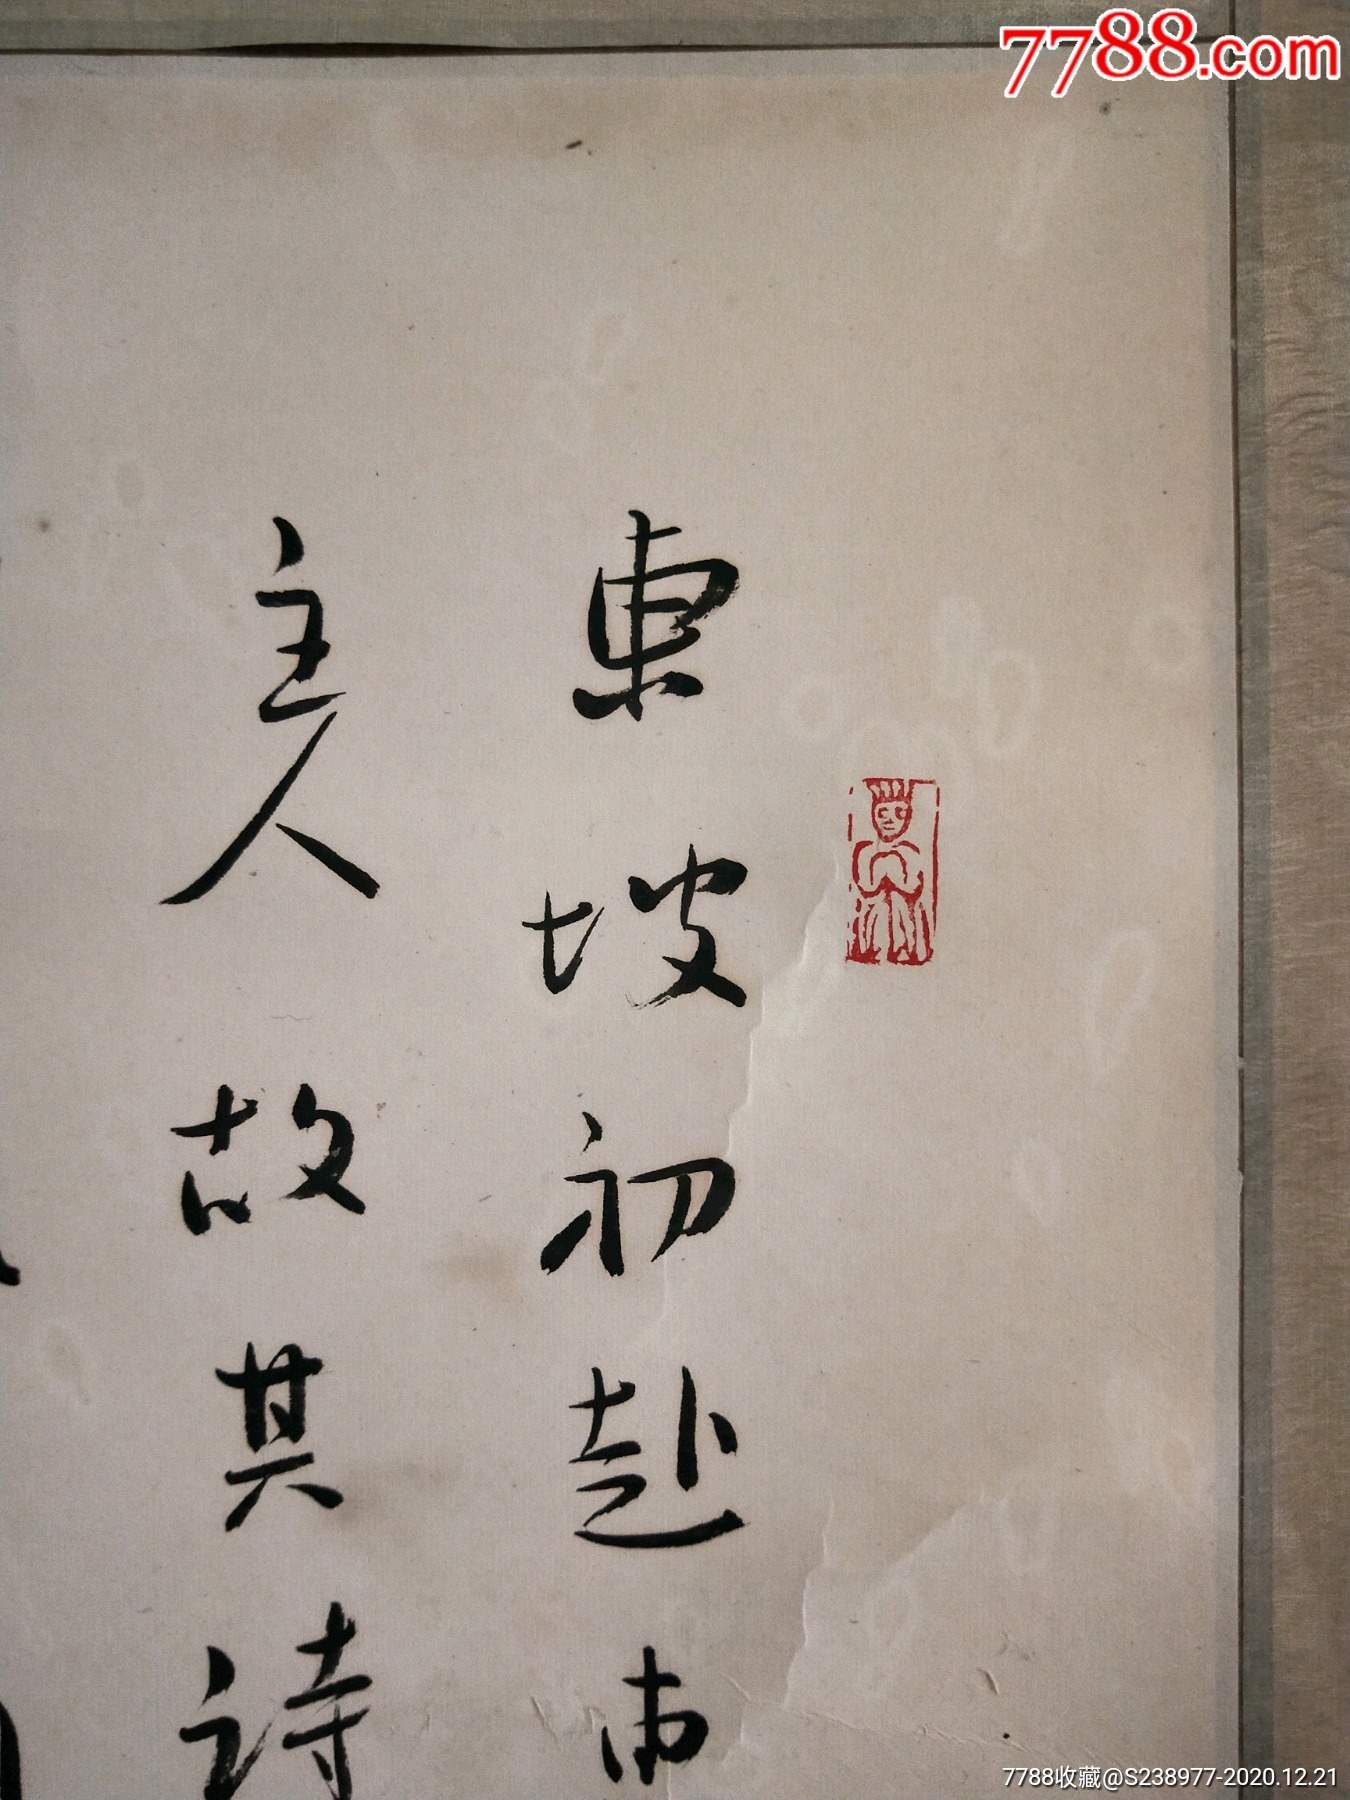 7788.com
東坡初赴
主人故其詩
7788收藏@S238977-2020.12.21